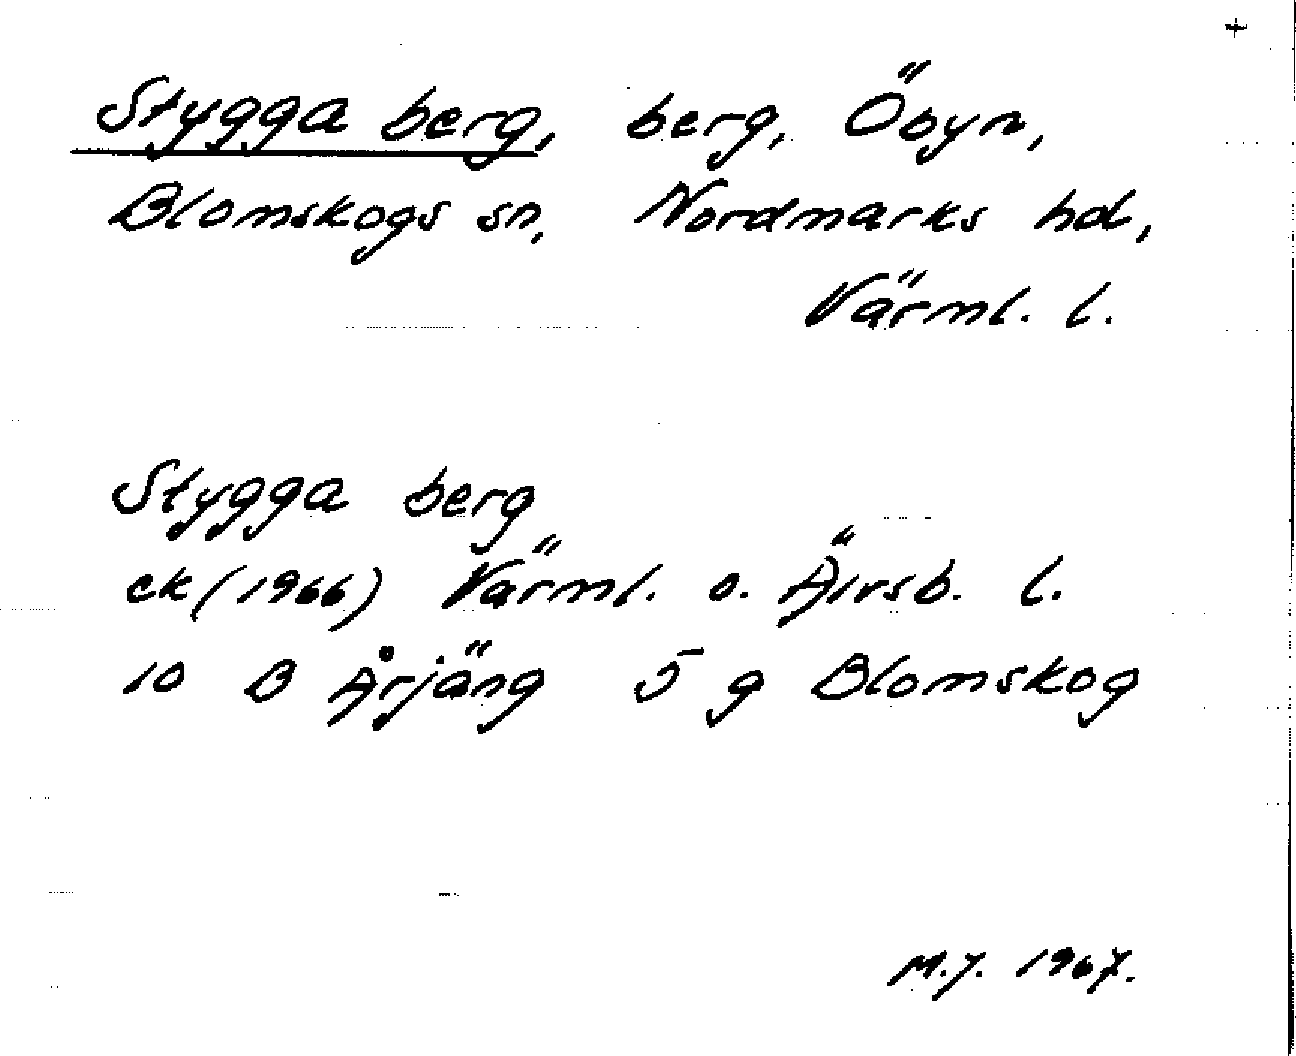 Stygga berg, berg, Öbyn,
Blomskogs sn, Nordmarks hd,
Värml. l.
Stygga berg
ek (1966) Värml. o. Älvsb. l.
10 B Årjäng 5 g Blomskog
M.J. 1967.